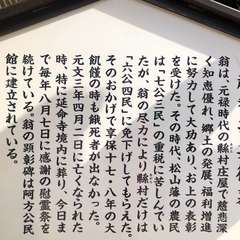 翁は、元禄時代の縣村庄屋で慈悲深
く知恵優れ、郷土の発展、福利増進
に努力して大功あり、お上の表彰
を受けた。その時代、松山藩の農民
は「七公三民」の重税に苦しんでい
たが、翁の尽力により縣村だけは
「六公四民」に免下げしてもらえた。
そのおかげで享保十七・八年の大
飢饉の時も餓死者が出なかった。
元文三年四月二日に亡くなられた
時、特に延命寺境内に葬り、今日ま
で毎年八月七日に感謝の慰霊祭を
続けている。翁の顕彰碑は阿方公民
館に建立されいる。